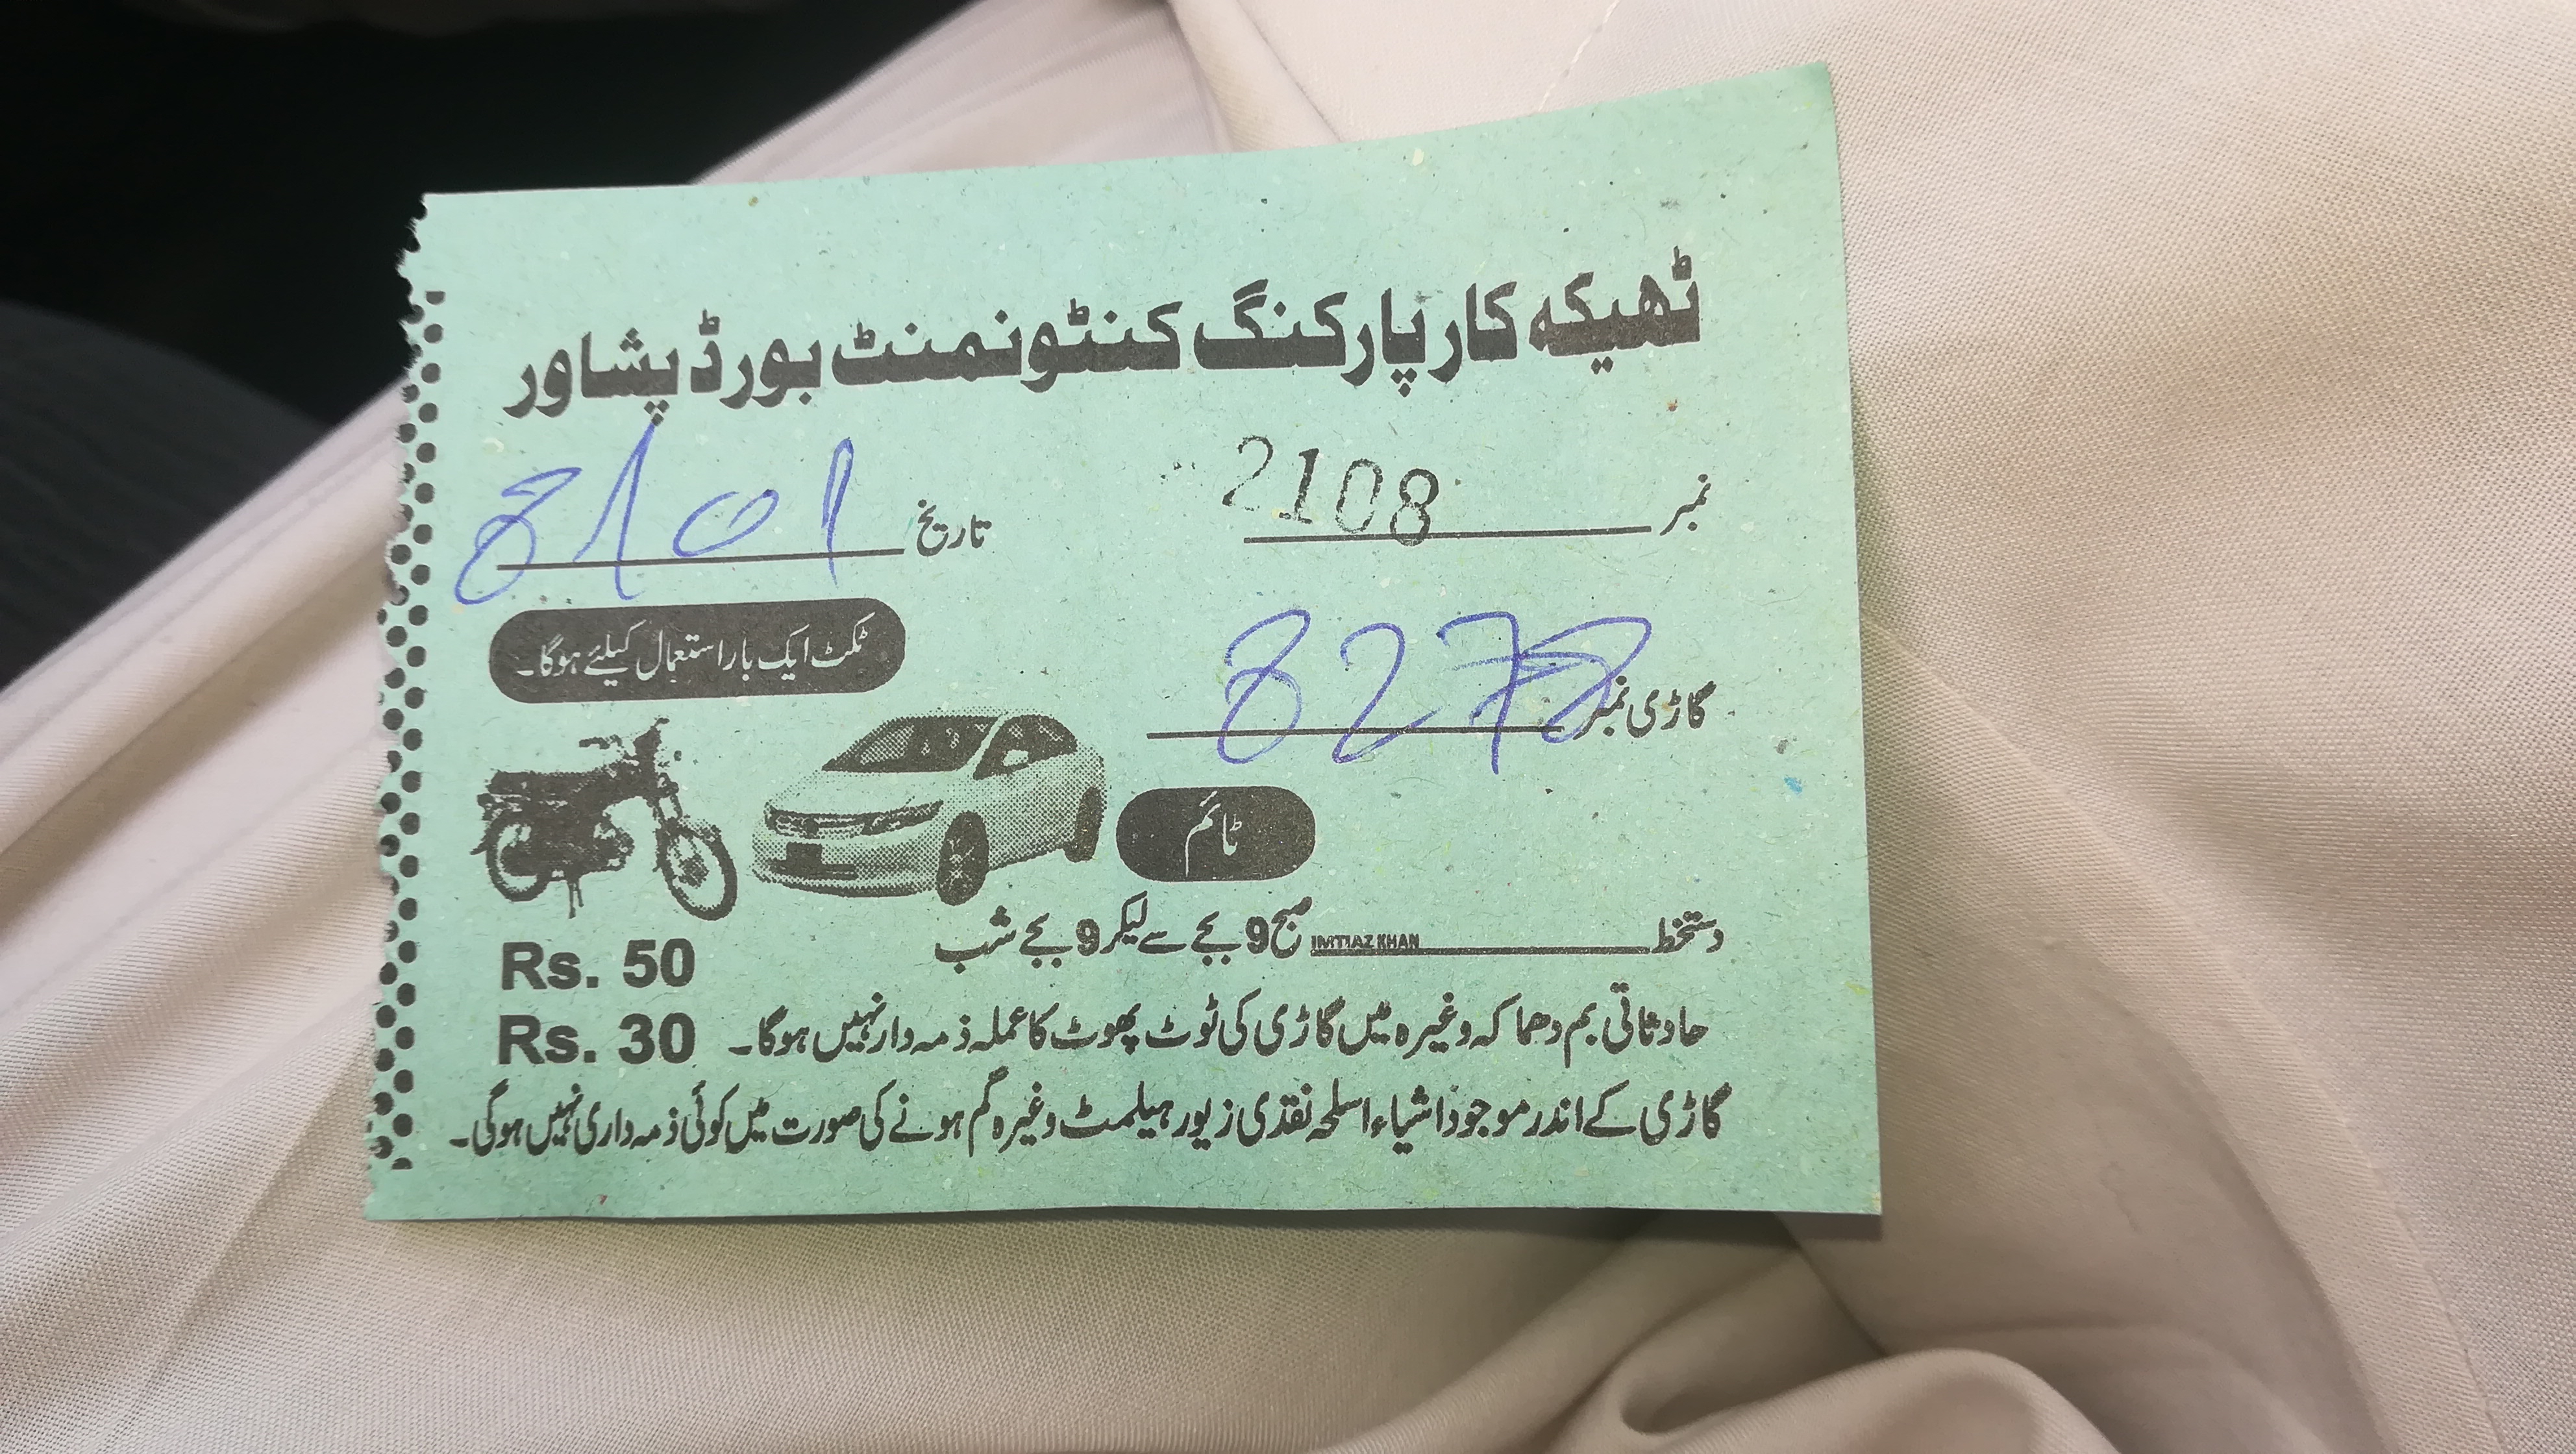 ٹھیکہ کار پارکنگ کنٹونمنٹ بورڈ پشاور
نمبر 2108
تاریخ 8/01
ٹکٹ ایک بار استعمال کیلئے ہوگا۔
گاڑی نمبر 8278
ٹائم
دستخط IMTIAZ KHAN
صبح 9 بجے سے لیکر 9 بجے شب
Rs. 50
Rs. 30
حادثاتی بم دھماکہ وغیرہ میں گاڑی کی ٹوٹ پھوٹ کا عملہ ذمہ دار نہیں ہوگا۔
گاڑی کے اندر موجود اشیاء اسلحہ نقدی زیور ہیلمٹ وغیرہ گم ہونے کی صورت میں کوئی ذمہ داری نہیں ہوگی۔